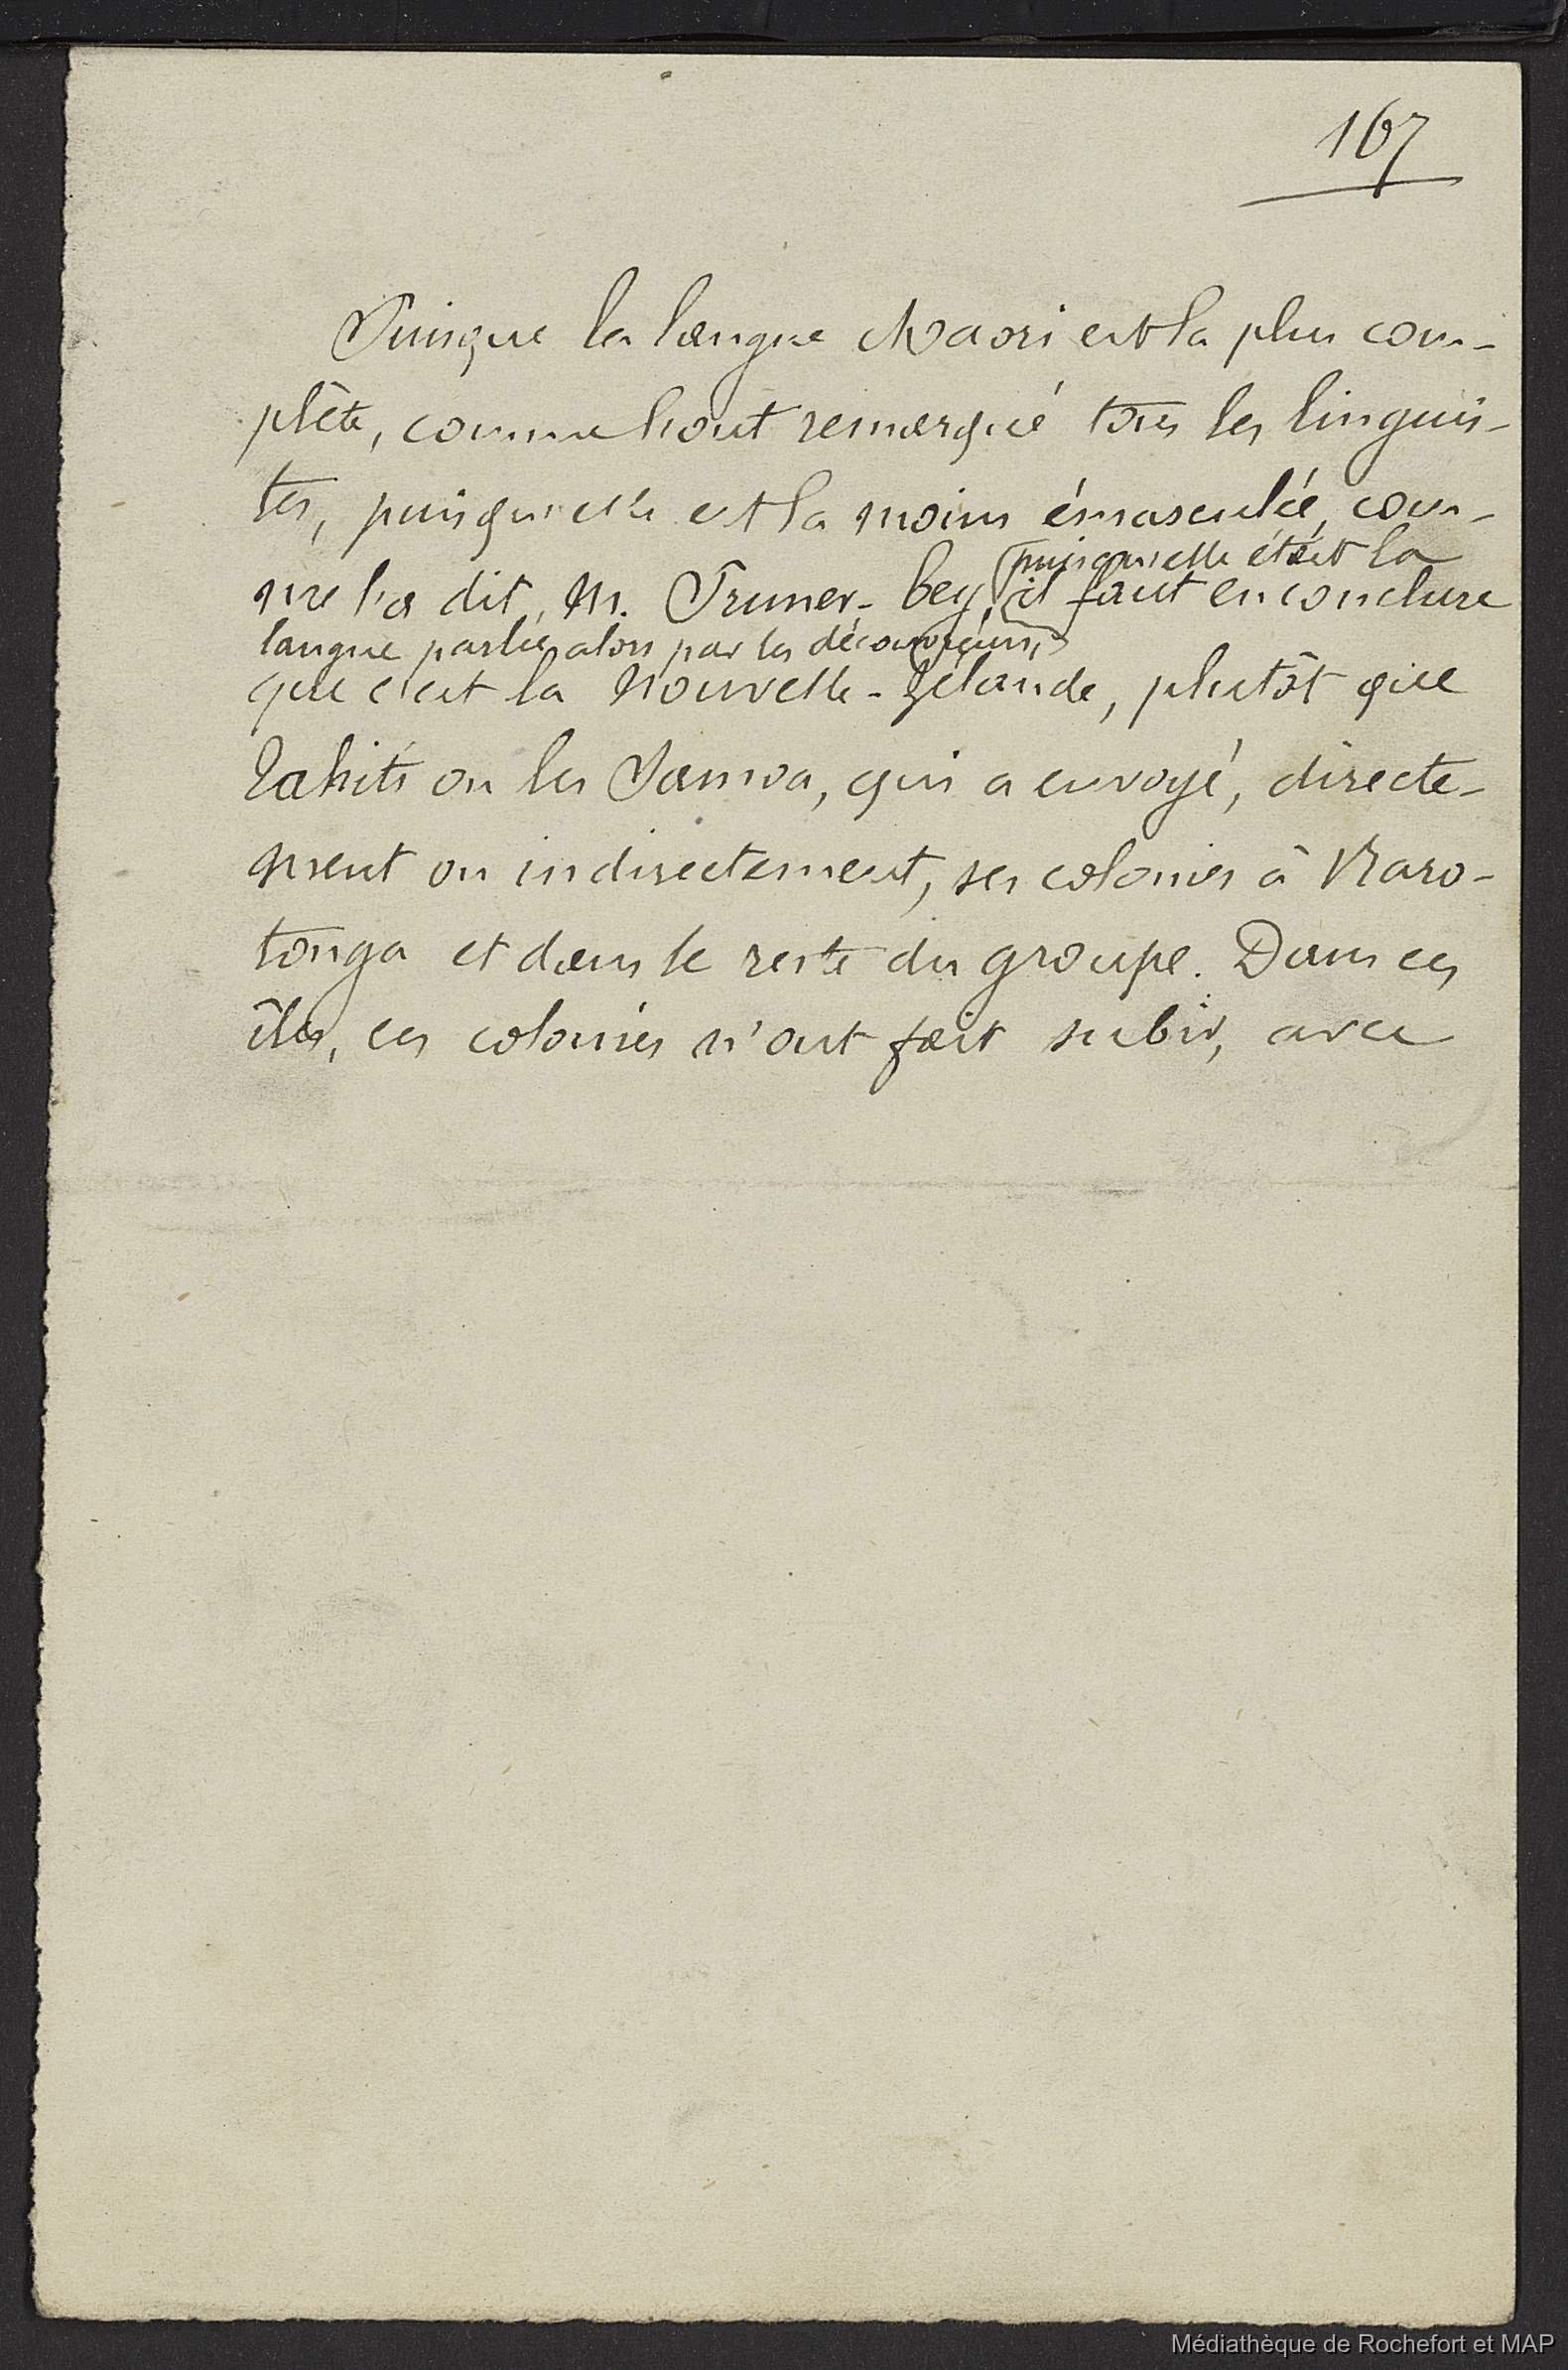 167
Puisque la langue Maori est la plus com-
plète, comme l'ont remarqué tous les linguis-
tes, puisqu'elle est la moins émasculée, com-
puisqu'elle était la
me l'a dit M. Pruner-bey, il faut en conclure
langue parlée alors par les découvreurs,
que c'est la Nouvelle-Zélande, plutôt que
Tahiti ou les Samoa, qui a envoyé, directe-
ment ou indirectement, ses colonies à Raro-
tonga et dans le reste du groupe. Dans ces
îles, ces colonies n'ont fait subir, avec
Médiathèque de Rochefort et MAP